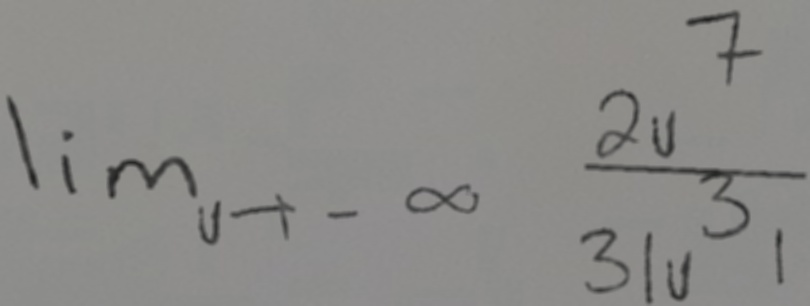 lim_{v→-∞} \frac{2v^7}{3|v^3|}